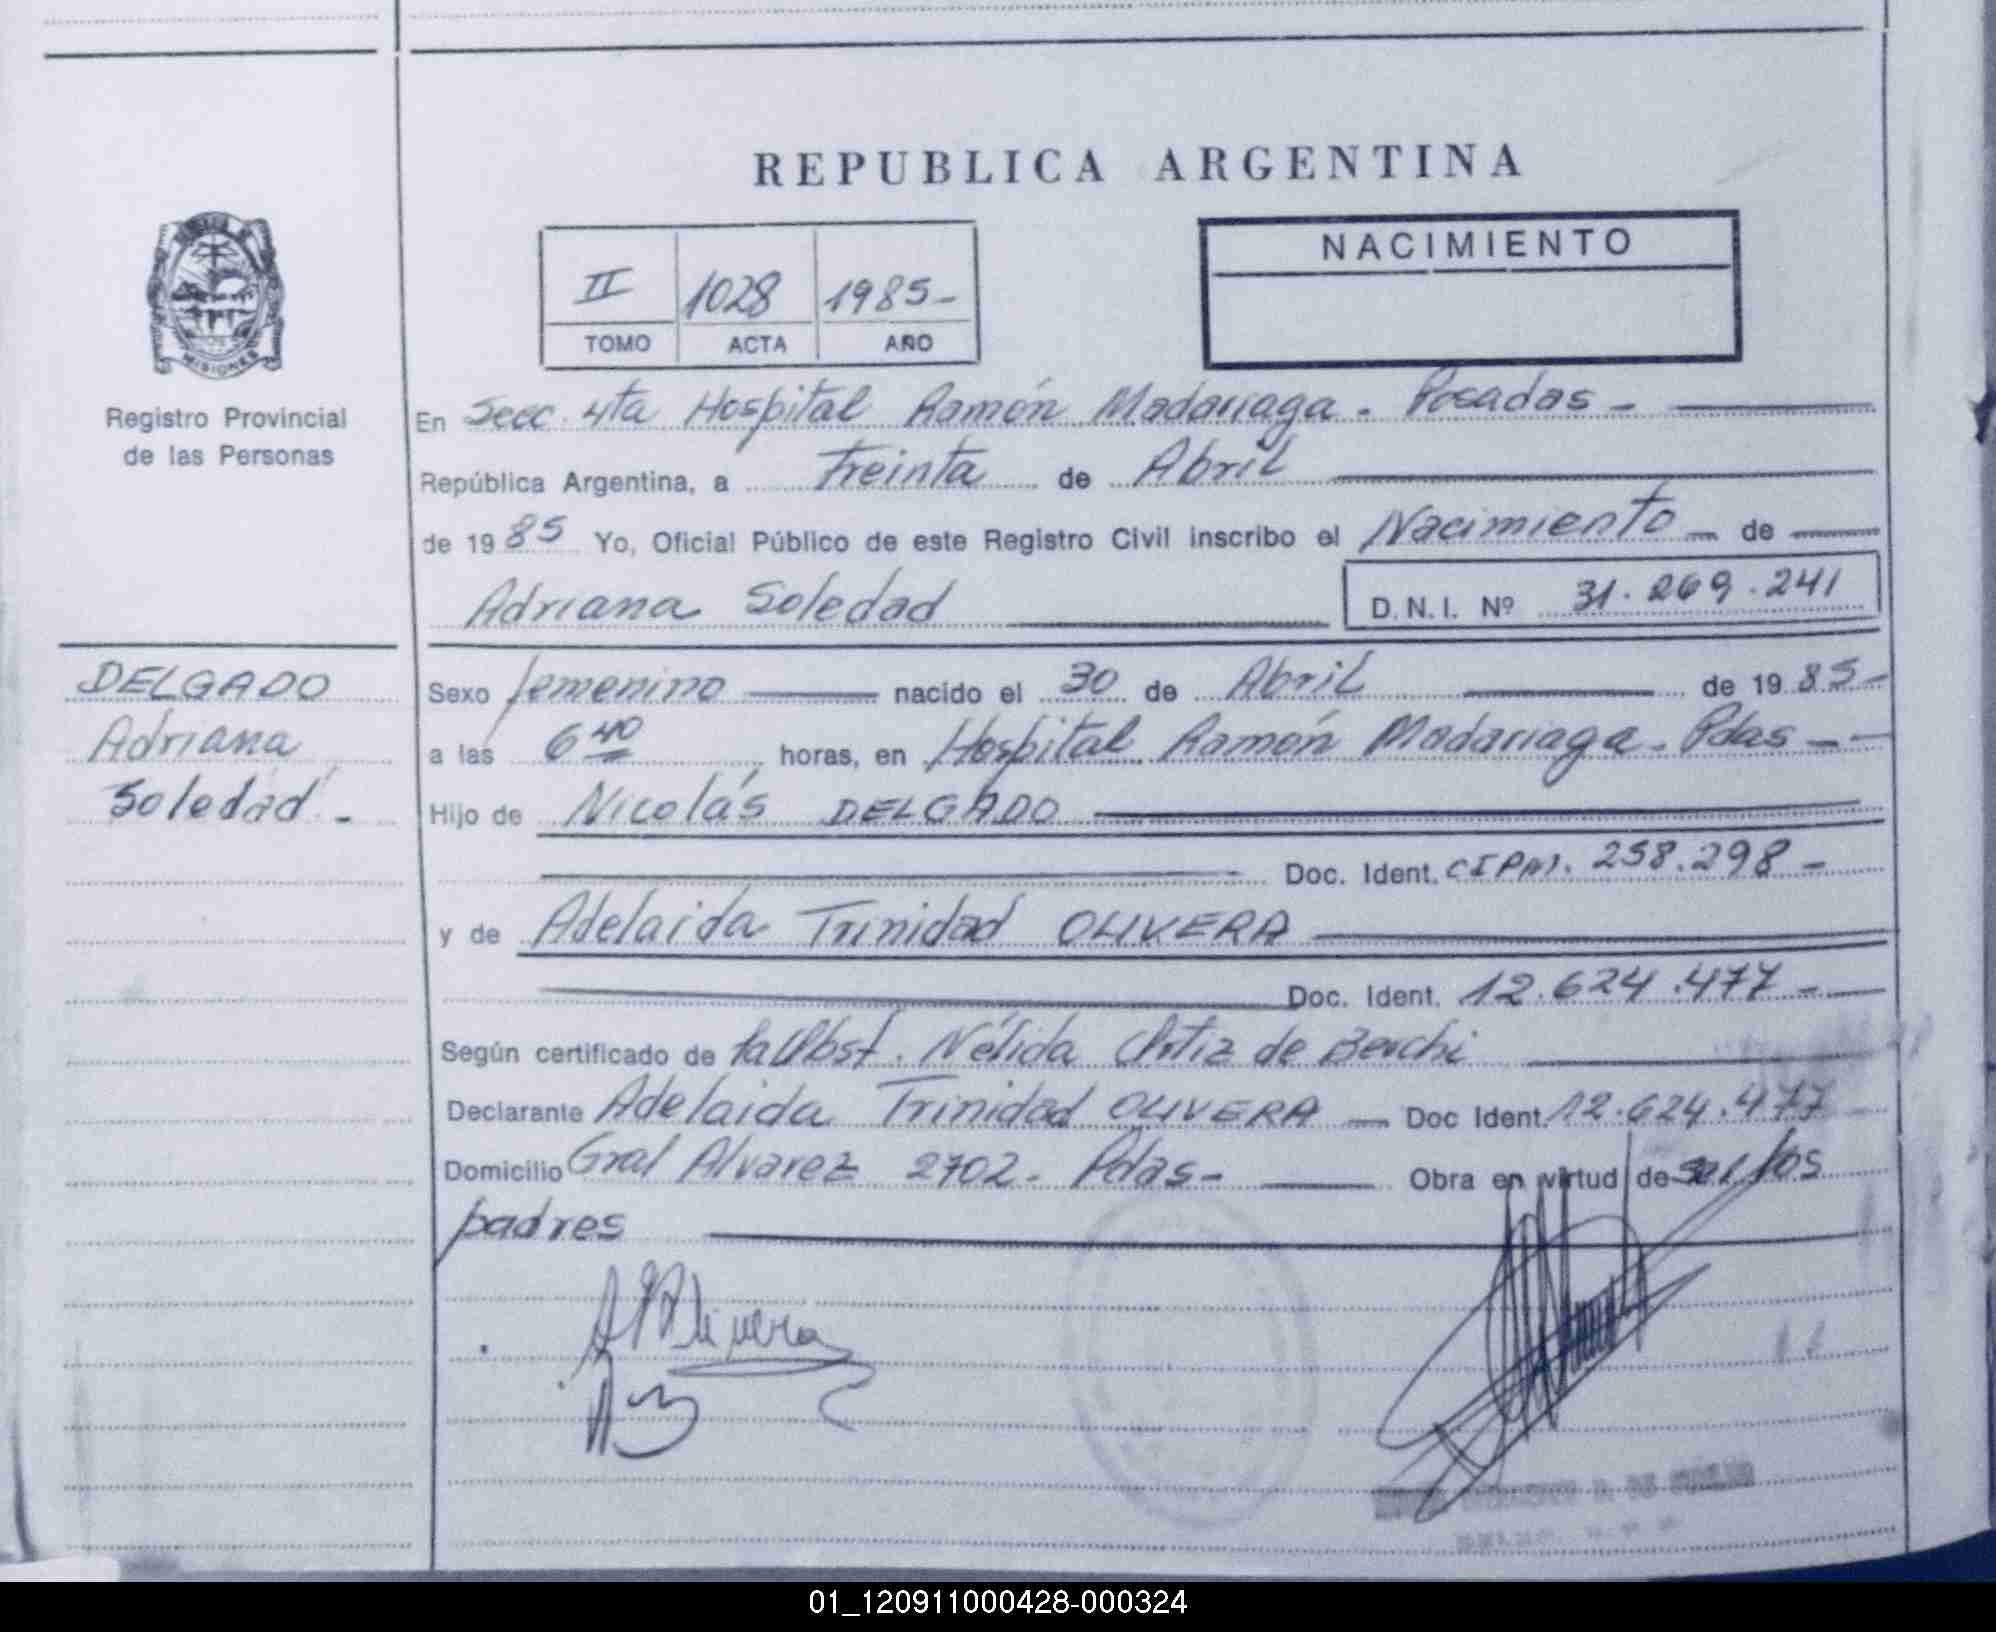 REPUBLICA ARGENTINA
NACIMIENTO
II 1028 1985-
TOMO ACTA AÑO
MISIONES
Registro Provincial
de las Personas
En Secc. 4ta Hospital Ramón Madariaga. Posadas -
República Argentina, a Treinta de Abril
de 1985 Yo, Oficial Público de este Registro Civil inscribo el Nacimiento de
Adriana Soledad D.N.I. Nº 31.269.241
DELGADO
Adriana
Soledad. -
Sexo femenino nacido el 30 de Abril de 1985-
a las 6 40 horas, en Hospital Ramón Madariaga. Pdas -
Hijo de Nicolás DELGADO
Doc. Ident. 258.298 -
y de Adelaida Trinidad OLIVERA
Doc. Ident. 12.624.477 -
Según certificado de la Obst. Nélida Ortiz de Berchi
Declarante Adelaida Trinidad OLIVERA Doc Ident. 12.624.477
Domicilio Gral Alvarez 2702. Pdas- Obra en virtud de ser los
padres
01_120911000428-000324